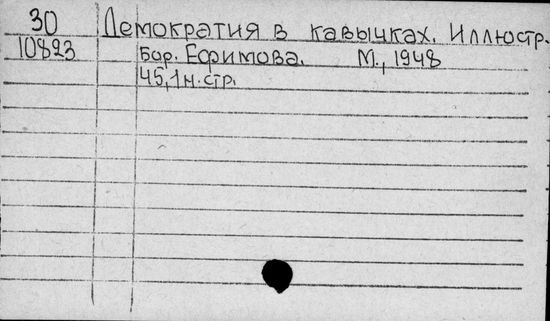 30 Демократия в кавычках. Иллюстр.
10823 Бор. Ефимова. М., 1948
45,1н.стр.